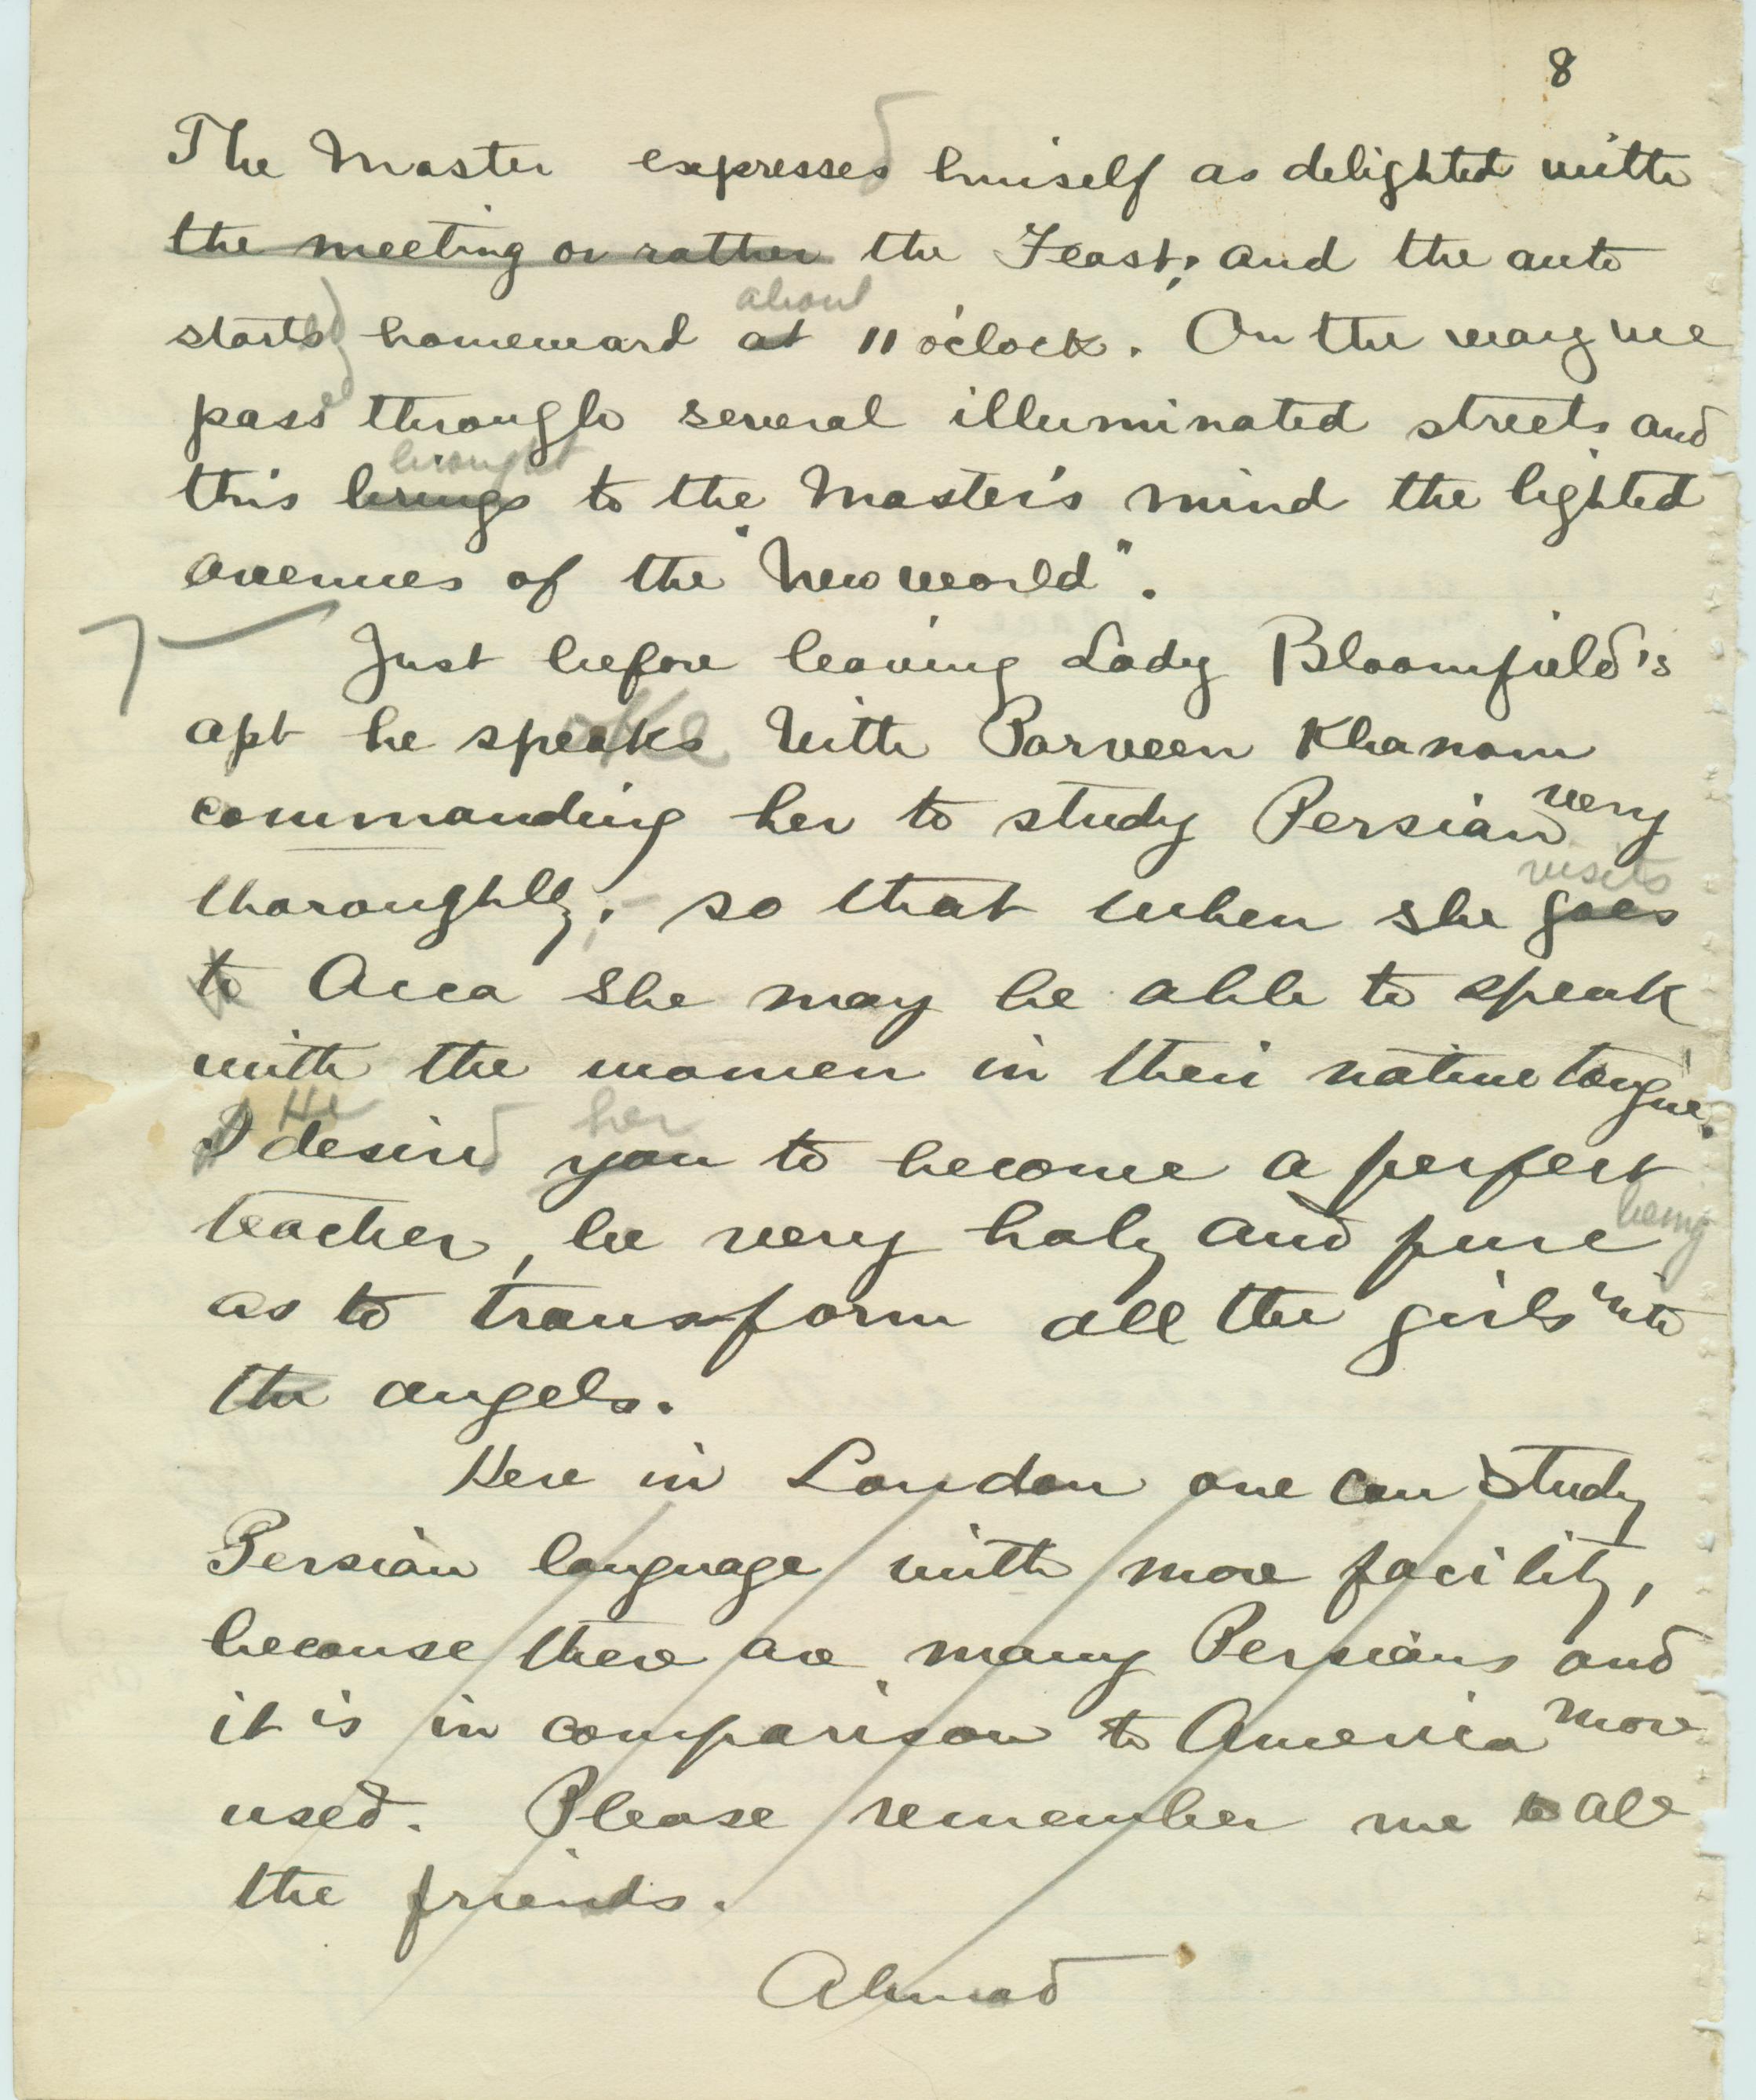 8
The Master expressed himself as delighted with
the meeting or rather the Feast; and the auto
about
starts homeward at 11 o'clock. On the way we
passed through several illuminated streets and
brought
this brings to the Master's mind the lighted
avenues of the "New world".
Just before leaving Lady Bloomfield's
apt he speaks with Parveen Khanom
commanding her to study Persian very
visits
thoroughly; so that when she goes
to Acca she may be able to speak
with the women in their native tongue.
He her
I desired you to become a perfect
being
teacher, be very holy and pure
as to transform all the girls into
the angels.
Here in London one can study
Persian language with more facility,
because there are many Persians and
it is in comparison to America more
used. Please remember me to all
the friends.
Ahmad